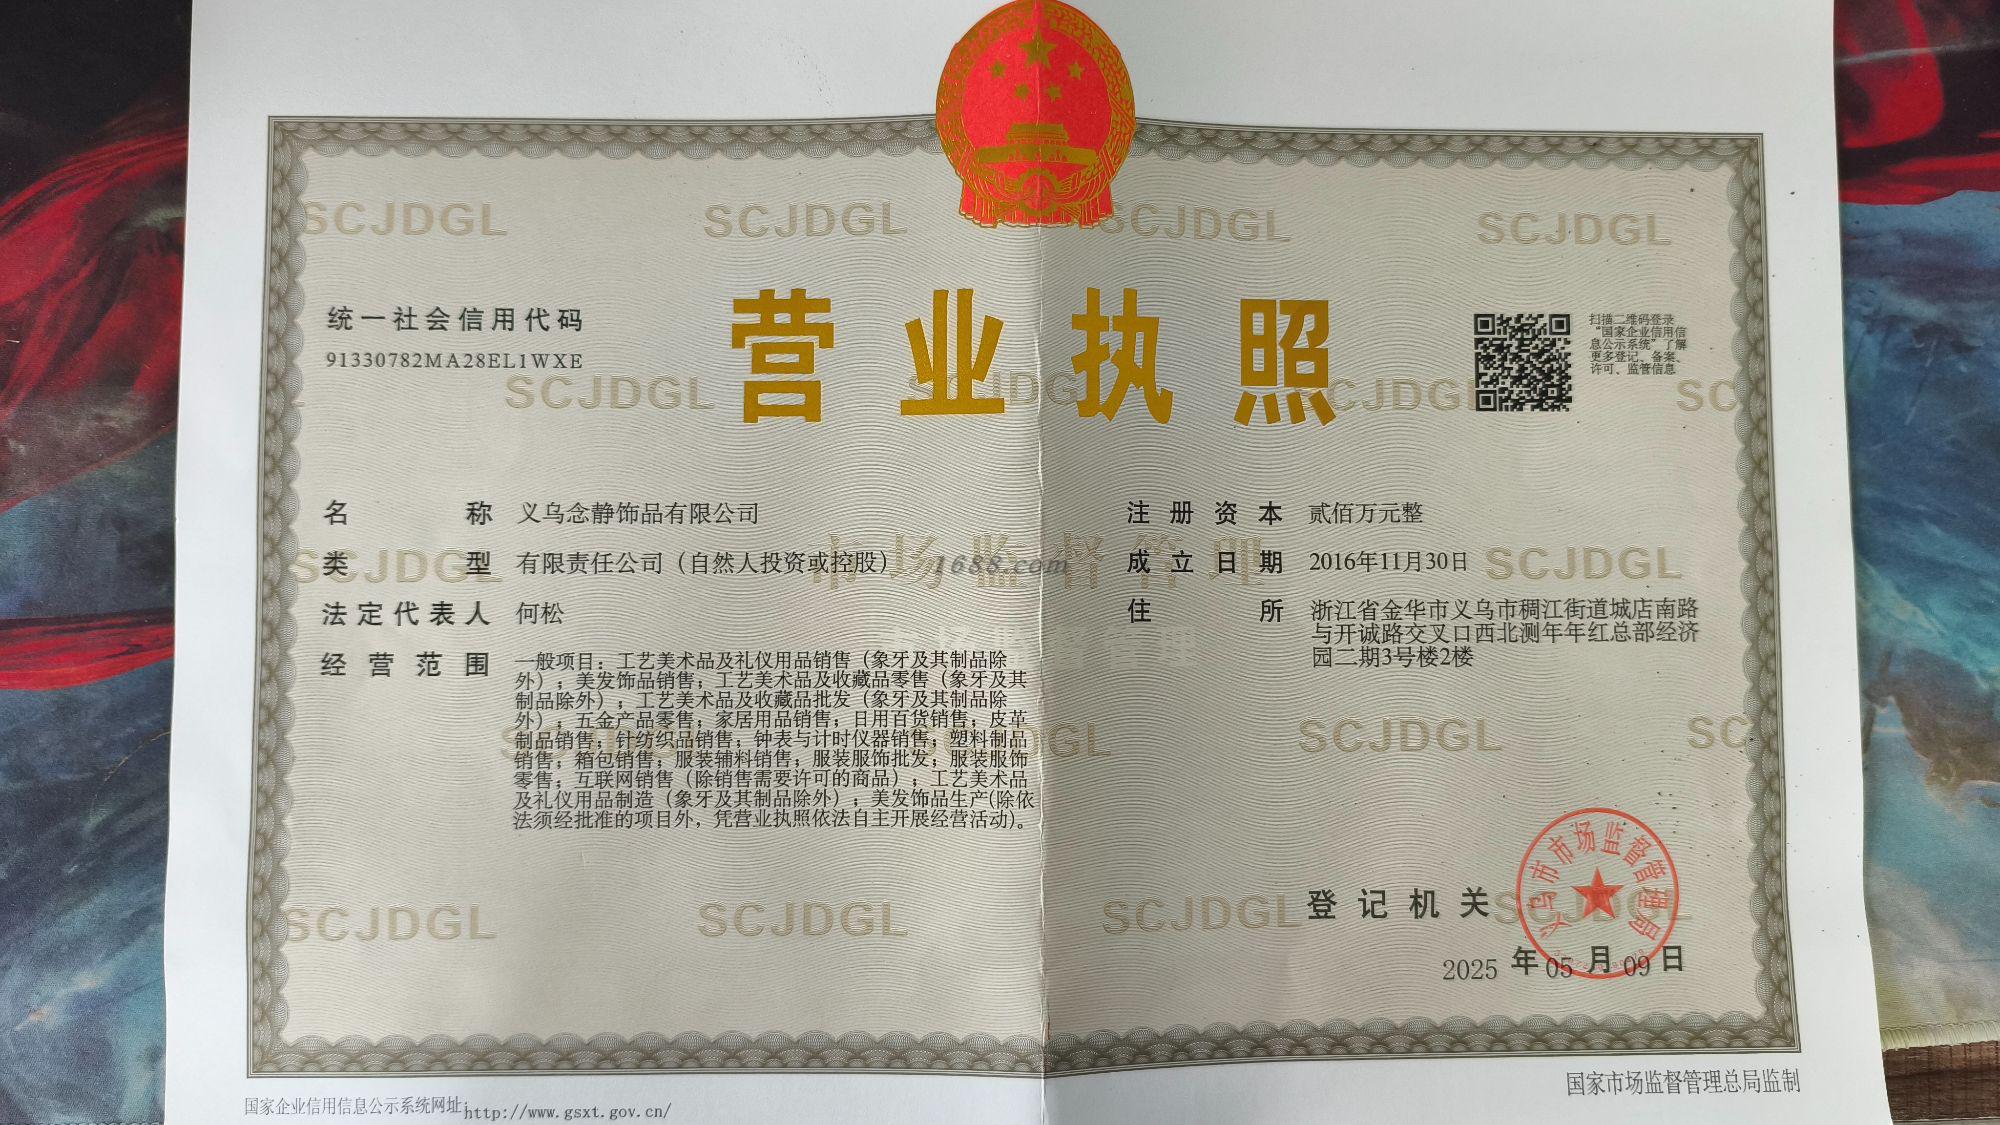 SCJDGL SCJDGL SCJDGL SCJDGL
统一社会信用代码
91330782MA28EL1WXE
营业执照
扫描二维码登录
“国家企业信用信
息公示系统”了解
更多登记、备案、
许可、监管信息
SCJDGL SCJDGL SC
名称 义乌念静饰品有限公司
类型 有限责任公司（自然人投资或控股）
法定代表人 何松
经营范围 一般项目：工艺美术品及礼仪用品销售（象牙及其制品除
外）；美发饰品销售；工艺美术品及收藏品零售（象牙及其
制品除外）；工艺美术品及收藏品批发（象牙及其制品除
外）；五金产品零售；家居用品销售；日用百货销售；皮革
制品销售；针纺织品销售；钟表与计时仪器销售；塑料制品
销售；箱包销售；服装辅料销售；服装服饰批发；服装服饰
零售；互联网销售（除销售需要许可的商品）；工艺美术品
及礼仪用品制造（象牙及其制品除外）；美发饰品生产(除依
法须经批准的项目外，凭营业执照依法自主开展经营活动)。
注册资本 贰佰万元整
成立日期 2016年11月30日
住所 浙江省金华市义乌市稠江街道城店南路
与开诚路交叉口西北测年年红总部经济
园二期3号楼2楼
1688.com
市场监督管理
SCJDGL SCJDGL
SCJDGL SC
登记机关
义乌市市场监督管理局
2025年05月09日
SCJDGL SCJDGL SCJDGL SCJDGL
国家企业信用信息公示系统网址:http://www.gsxt.gov.cn/
国家市场监督管理总局监制